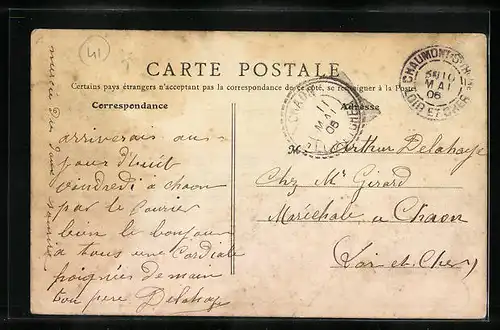 41
CARTE POSTALE
Certains pays étrangers n'acceptant pas la correspondance de ce côté, se renseigner à la Poste
Correspondance
Adresse
arriverais au-
jour d'huit
vendredi a chaon
par le Courier
bien le bonjour
a tous une Cordiale
poignées de main
ton pere Delahaye
CHAUMONT
MAI
06
LOIR ET CHER
11
MAI
06
M. Arthur Delahaye
Chez Mr Girard
Maréchale a Chaon
Loir-et-Cher